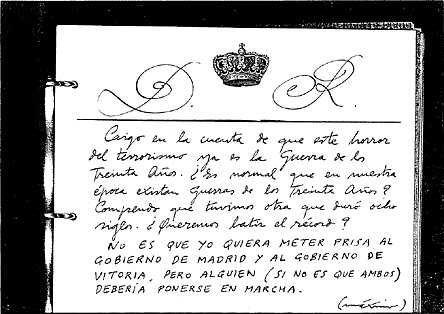 D. R.
Caigo en la cuenta de que este horror
del terrorismo ya es la Guerra de los
Treinta Años. ¿Es normal que en nuestra
época existan guerras de los Treinta Años?
Comprendo que tuvimos otra que duró ocho
siglos. ¿Queremos batir el récord?
NO ES QUE YO QUIERA METER PRISA AL
GOBIERNO DE MADRID Y AL GOBIERNO DE
VITORIA, PERO ALGUIEN (SI NO ES QUE AMBOS)
DEBERÍA PONERSE EN MARCHA.
(máximo)